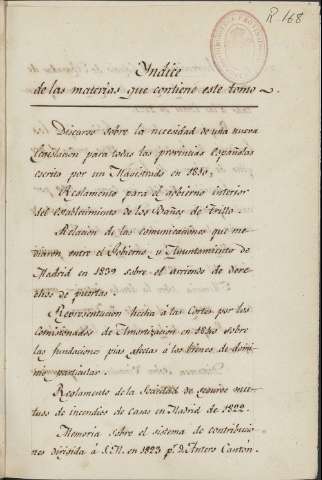 R 168
Yndice
de las materias que contiene este tomo.
Discurso sobre la necesidad de una nueva
Lejislacion para todas las provincias Españolas
escrito por un Magistrado en 1810.
Reglamento para el gobierno interior
del establecimiento de los Baños de Trillo.
Relacion de las comunicaciones que me-
diaron entre el Gobierno y Ayuntamiento de
Madrid en 1839 sobre el arriendo de dere-
chos de puertas.
Representacion hecha á las Cortes por los
Comisionados de Amortizacion en 1840 sobre
las fundaciones pias afectas á los bienes de domi-
nio particular.
Reglamento de la Sociedad de seguros mu-
tuos de incendios de casas en Madrid de 1822.
Memoria sobre el sistema de contribucio-
nes dirigida á S.M. en 1823 pr. d. Antero Cantón.